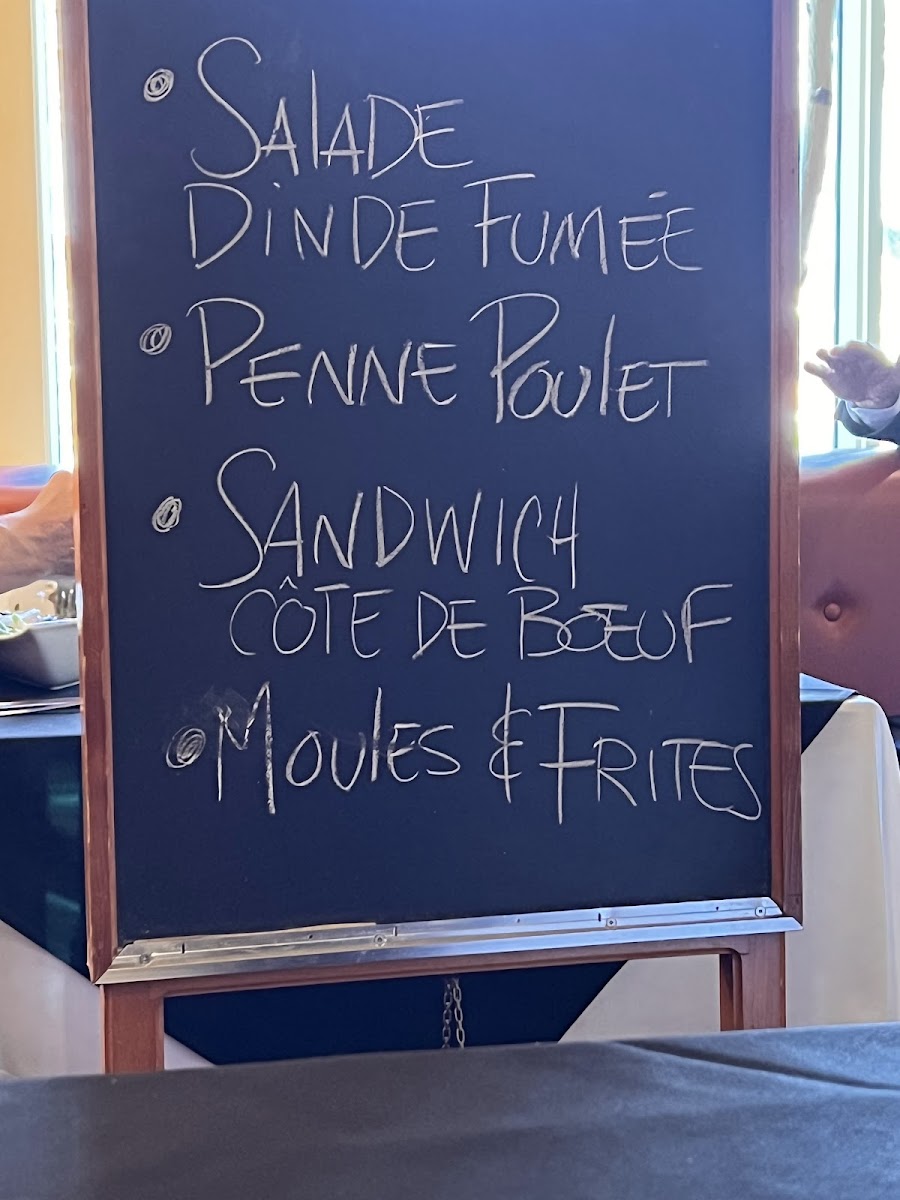 • SALADE
DINDE FUMÉE
• PENNE POULET
• SANDWICH
CÔTE DE BŒUF
• MOULES & FRITES